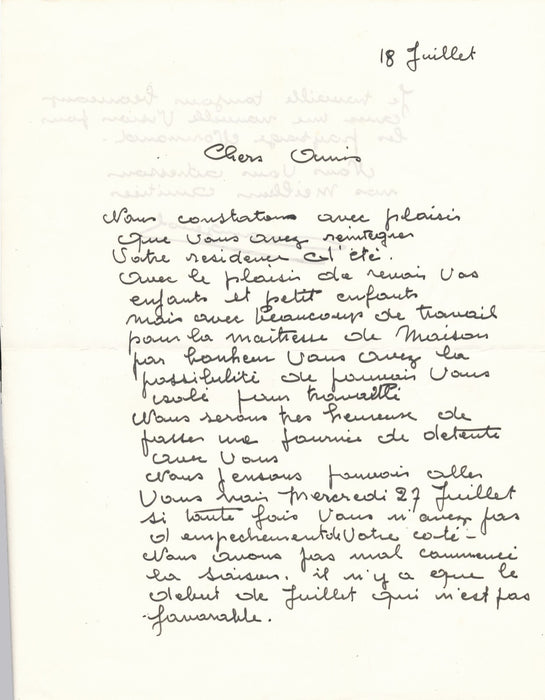 18 Juillet
Chers Amis
Nous constatons avec plaisir
que vous avez réintégrer
Votre residence d'été.
avec le plaisir de revoir vos
enfants et petit enfants
mais avec beaucoup de travail
pour la maitresse de Maison
par bonheur vous avez la
possibilité de pouvoir vous
isolé pour travaillé
Nous serons tres heureuse de
passer une journée de detente
avec Vous
Nous pensons pouvoir aller
Vous voir Mercredi 27 Juillet
si toute fois Vous n'avez pas
d'empechement de Votre coté -
Nous avons pas mal commencé
la saison. il n'y a que le
debut de Juillet qui n'est pas
favorable.